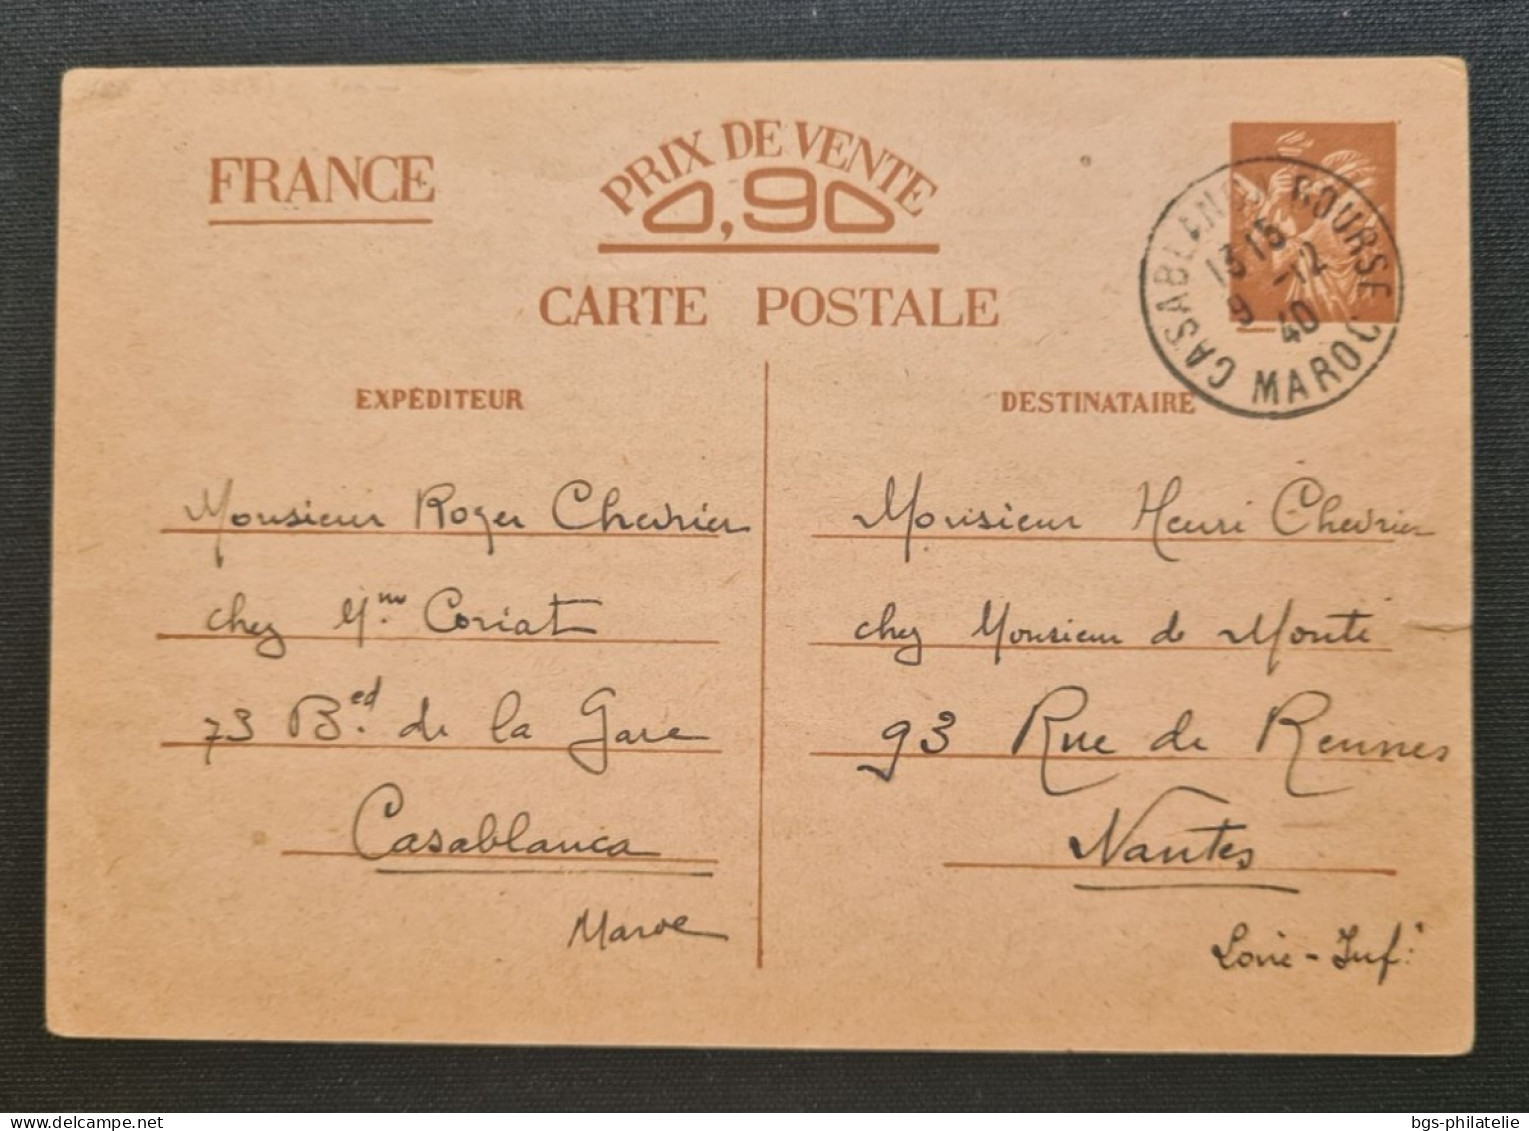 FRANCE
PRIX DE VENTE
0,90
CARTE POSTALE
CASABLANCA BOURSE
13 15
9 -12
40
MAROC
EXPÉDITEUR
Monsieur Roger Chevrier
chez Mme Coriat
73 B.ed de la Gare
Casablanca
Maroc
DESTINATAIRE
Monsieur Henri Chevrier
chez Monsieur de Monti
93 Rue de Rennes
Nantes
Loire-Inf.
bgs-philatelie